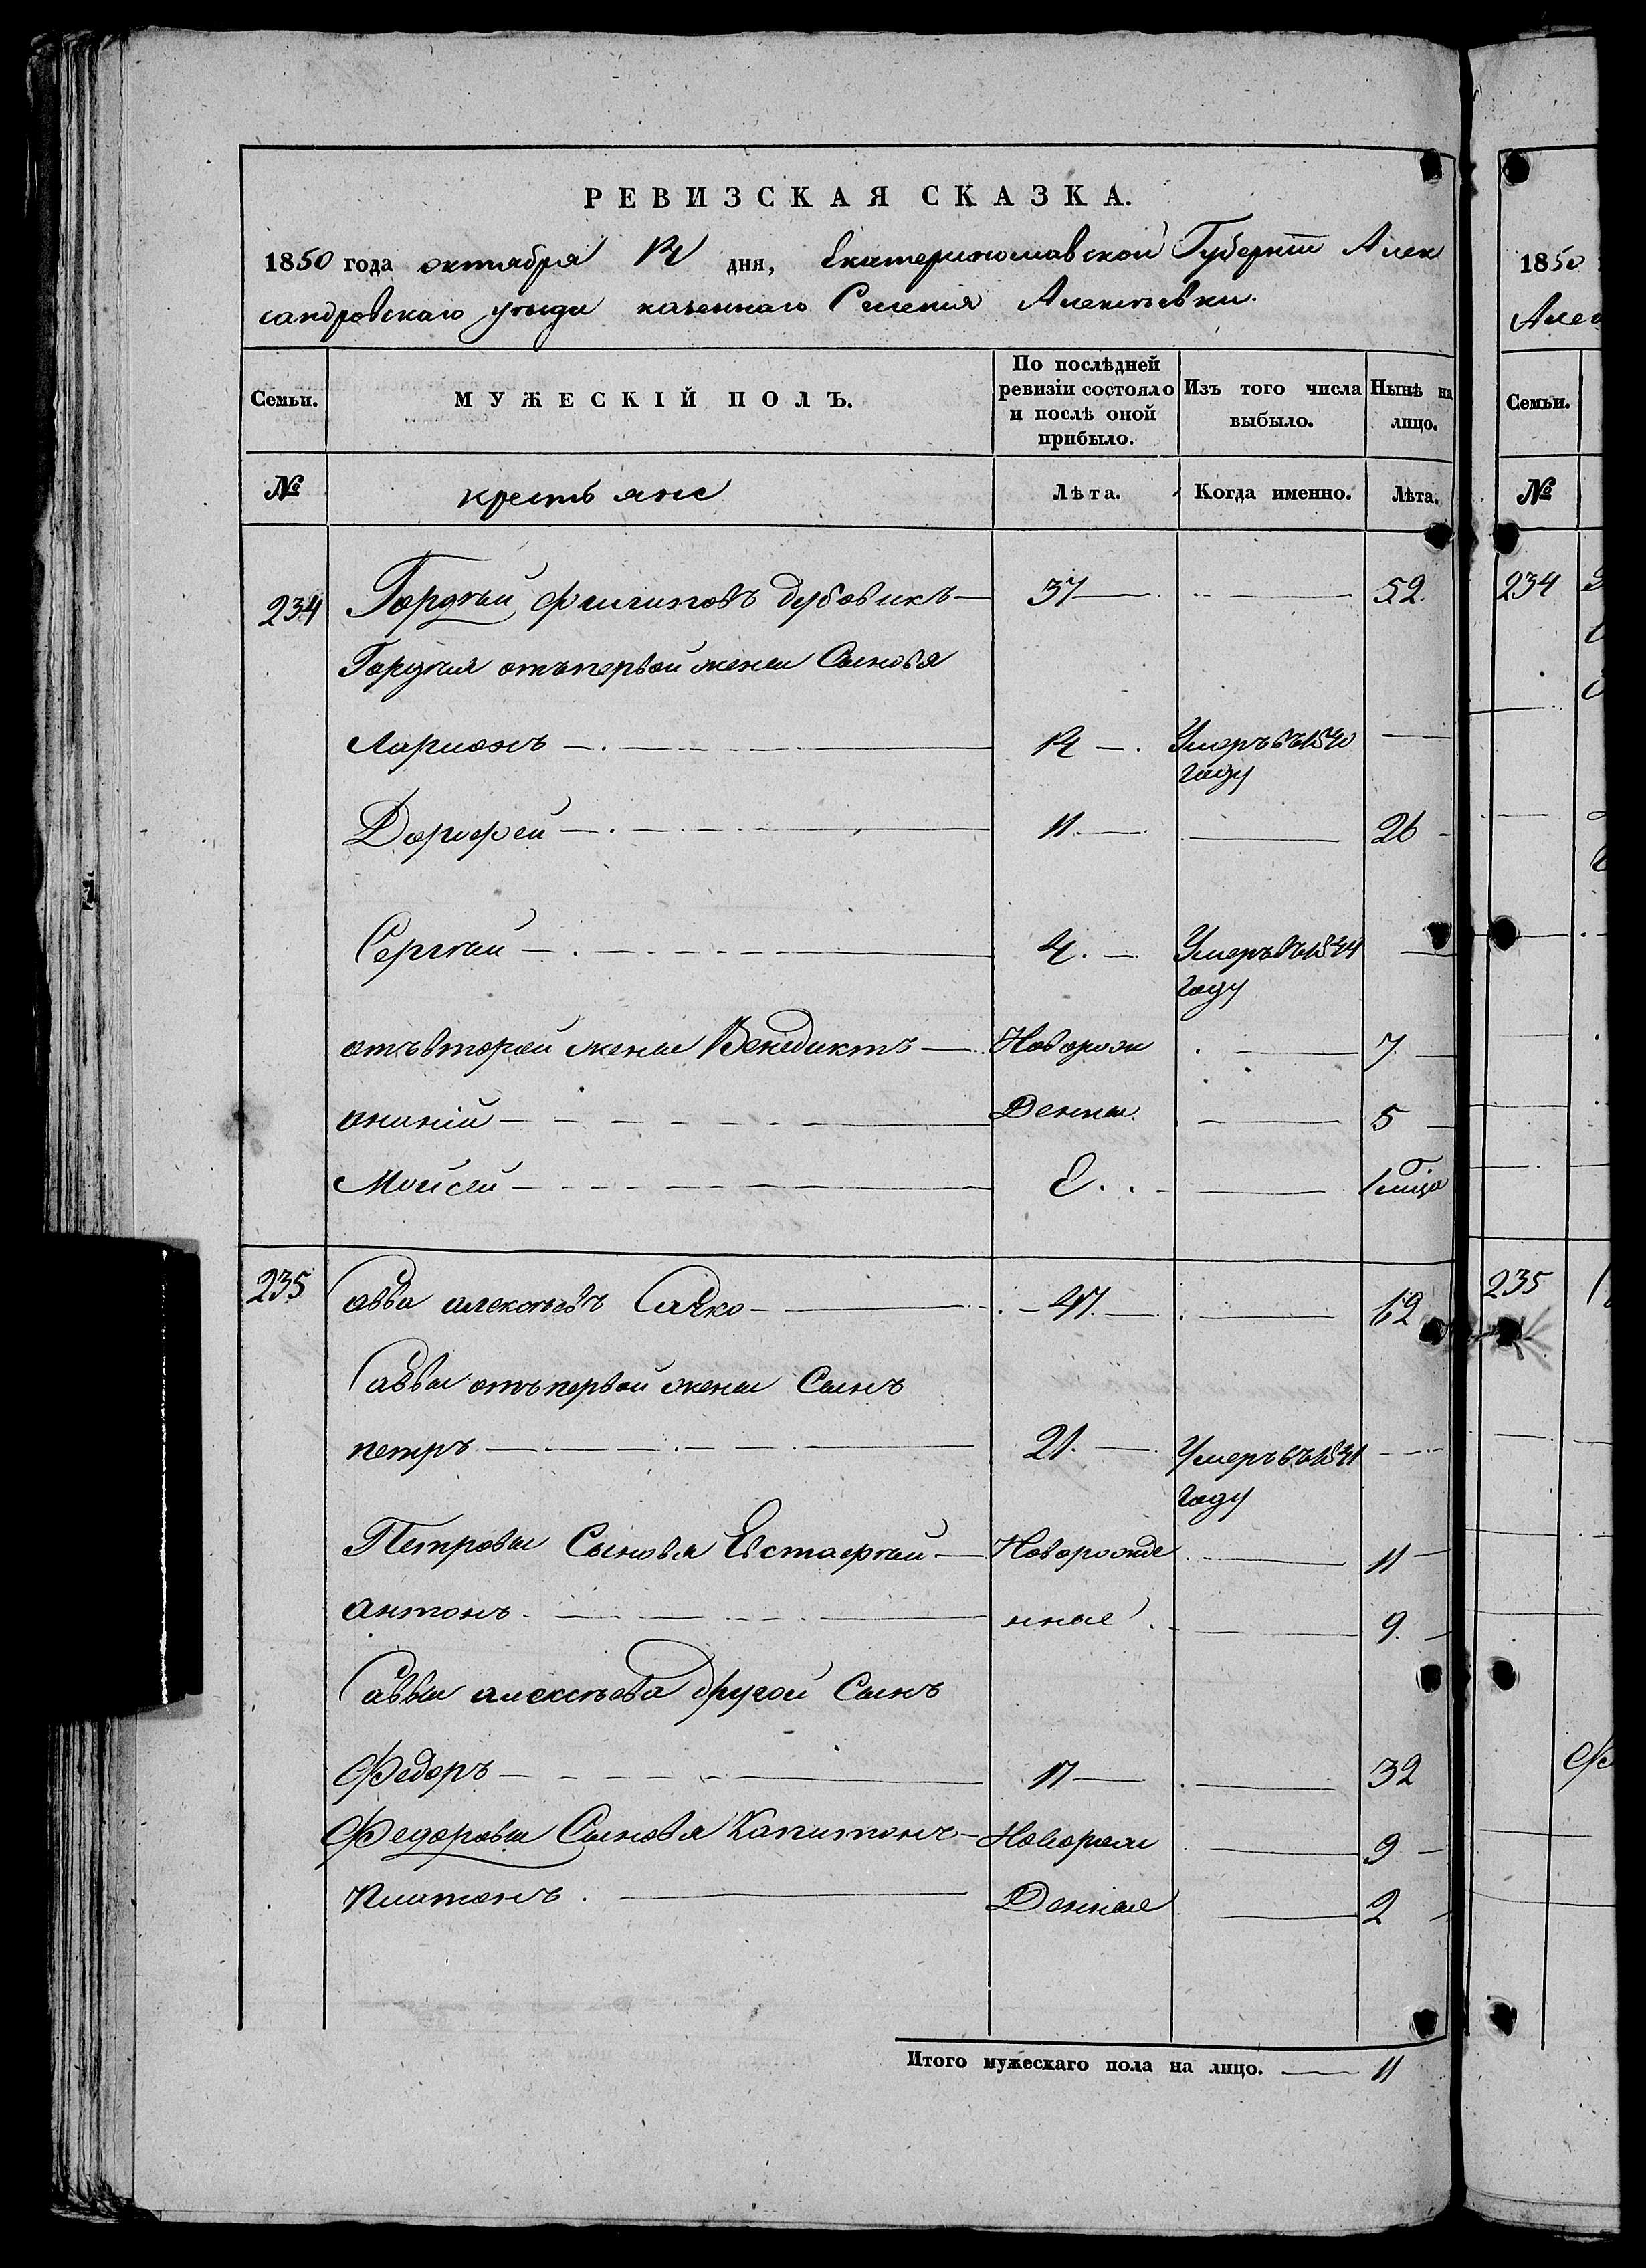 РЕВИЗСКАЯ СКАЗКА.
1850 года октября 14 дня, Екатеринославской Губерніи Алек
сандровскаго уѣзда казеннаго Селенія Алексѣевки.
Семьи. МУЖЕСКІЙ ПОЛЪ. По послѣдней ревизіи состояло и послѣ оной прибыло. Изъ того числа выбыло. Нынѣ на лицо.
№ крестьяне Лѣта. Когда именно. Лѣта.
234 Гордѣй Филиповъ Дубовикъ 37 52.
Гордѣя отъ первой жены Сыновья
Ларионъ 14 Умеръ въ 1840
году
Дорофей 11 26
Сергѣй 4. Умеръ въ 1844
году
отъ второй жены Венедиктъ Новорож 7
онаній Денны 5
Мойсей Е 1 мѣца
235 Савва алексѣевъ Сачко 47. 62
Саввы отъ первой жены Сынъ
петръ 21. Умеръ въ 1841
году
Петровы Сыновья Евстафѣй Новорожде 11
антонъ нные 9.
Саввы алексѣева другой Сынъ
Федоръ 17 32
Федоровы Сыновья Капитонъ Новорож 9
Платонъ. Денные 2
Итого мужескаго пола на лицо. 11
1850
Алек
Семьи.
№
234
235